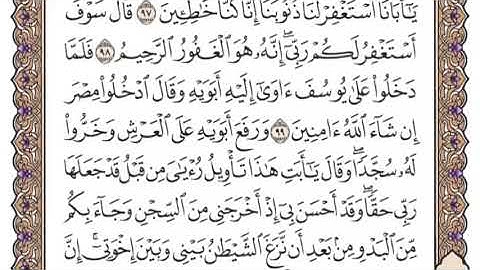 يَـٰٓأَبَانَا ٱسْتَغْفِرْ لَنَا ذُنُوبَنَآ إِنَّا كُنَّا خَـٰطِـِٔينَ ٩٧ قَالَ سَوْفَ
أَسْتَغْفِرُ لَكُمْ رَبِّىٓ ۖ إِنَّهُۥ هُوَ ٱلْغَفُورُ ٱلرَّحِيمُ ٩٨ فَلَمَّا
دَخَلُوا۟ عَلَىٰ يُوسُفَ ءَاوَىٰٓ إِلَيْهِ أَبَوَيْهِ وَقَالَ ٱدْخُلُوا۟ مِصْرَ
إِن شَآءَ ٱللَّهُ ءَامِنِينَ ٩٩ وَرَفَعَ أَبَوَيْهِ عَلَى ٱلْعَرْشِ وَخَرُّوا۟
لَهُۥ سُجَّدًا ۖ وَقَالَ يَـٰٓأَبَتِ هَـٰذَا تَأْوِيلُ رُءْيَـٰىَ مِن قَبْلُ قَدْ جَعَلَهَا
رَبِّى حَقًّا ۖ وَقَدْ أَحْسَنَ بِىٓ إِذْ أَخْرَجَنِى مِنَ ٱلسِّجْنِ وَجَآءَ بِكُم
مِّنَ ٱلْبَدْوِ مِنۢ بَعْدِ أَن نَّزَغَ ٱلشَّيْطَـٰنُ بَيْنِى وَبَيْنَ إِخْوَتِىٓ ۚ إِنَّ